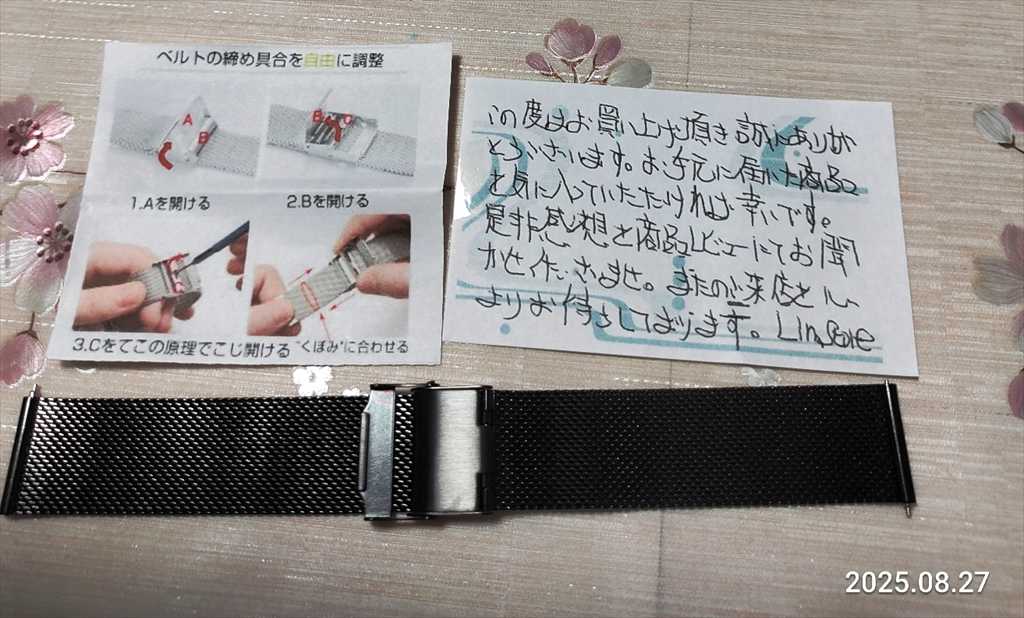 ベルトの締め具合を自由に調整
A
B
B
C
1.Aを開ける
2.Bを開ける
3.Cをてこの原理でこじ開ける
"くぼみ"に合わせる
この度はお買い上げ頂き誠にありが
とうございます。お手元に届いた商品
を気に入っていただければ幸いです。
是非感想を商品レビューにてお聞
かせくださいませ。またのご来店を心
よりお待ちしております。
2025.08.27